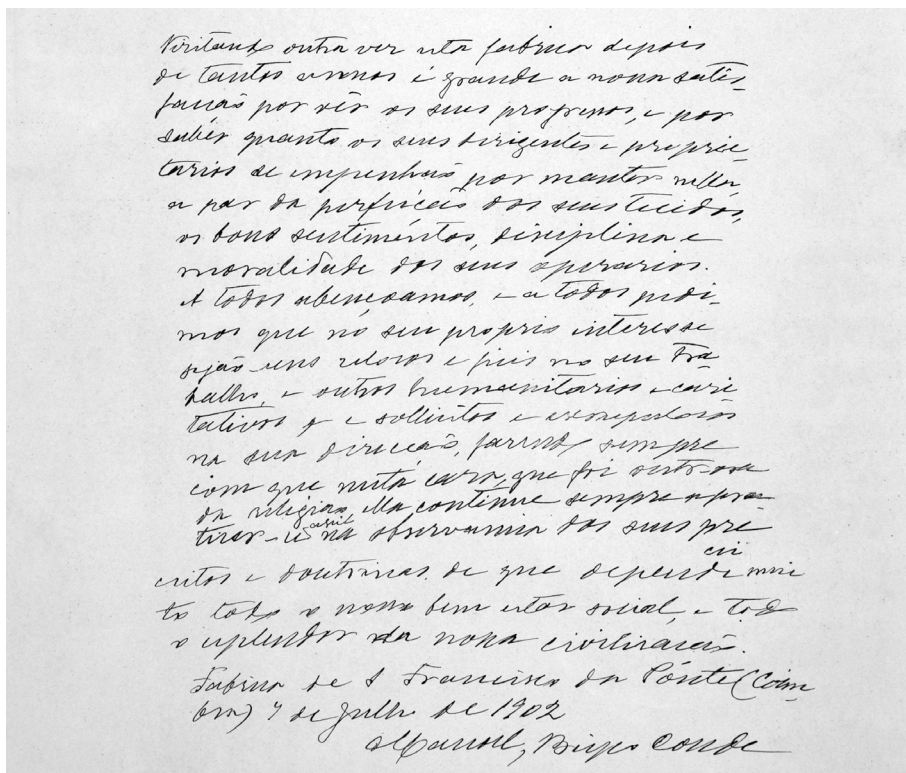 Visitando outra vez esta fabrica depois
de tantos annos é grande a nossa satis-
fação por vêr os seus progressos, e por
saber quanto os seus dirigentes e proprie-
tarios se empenhão por manter nella,
a par da perfeição dos seus tecidos,
os bons sentimentos, disciplina e
moralidade dos seus operarios.
A todos abençoamos, e a todos pedi-
mos que no seu proprio interesse
sejão uns zelosos e fieis no seu tra
balho, e outros humanitarios e cari-
tativos e sollicitos e
na sua direcção, fazendo sempre
com que nesta caza, que foi outrora
da religião, ella continue sempre a
na observancia dos seus pre
ceitos e doutrinas de que depende
to todo o nosso bem estar social, e todo
o esplendor da nossa civilização.
Fabrica de S Francisco da Pónte (Coim-
bra) 7 de Julho de 1902
Manoel, Bispo Conde